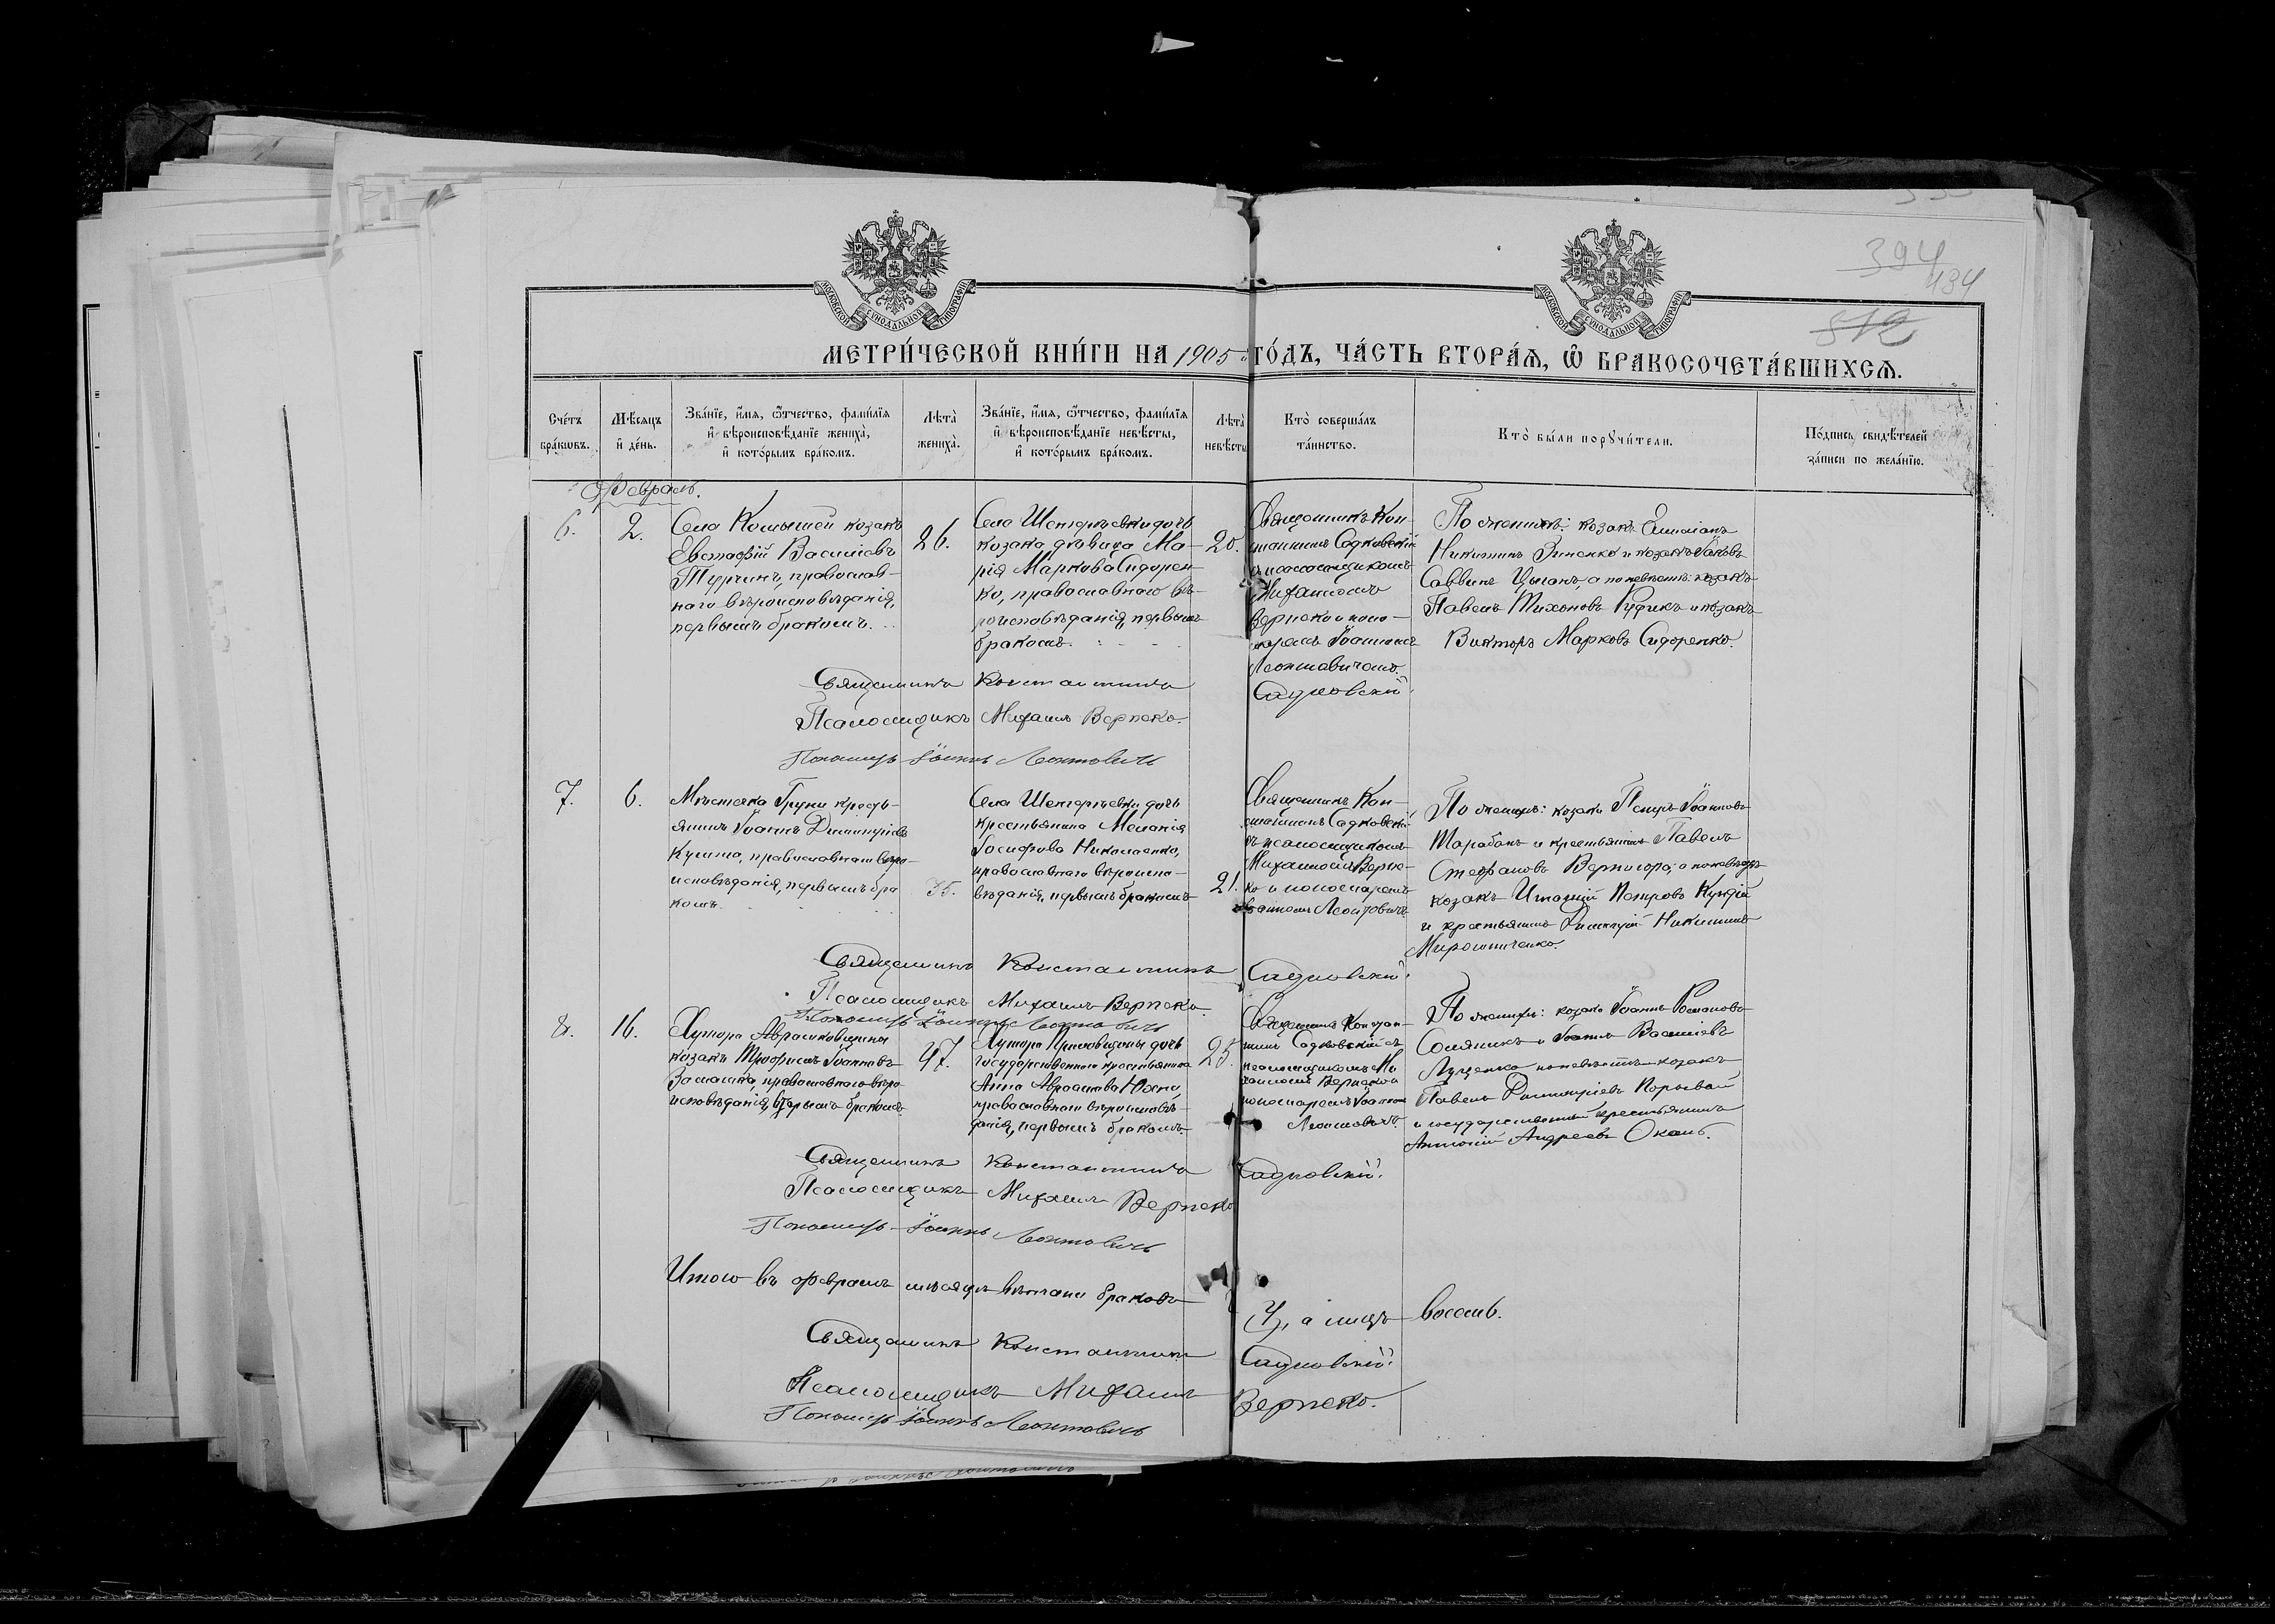 394
434
512
МОСКОВСКОЙ СУНОДАЛЬНОЙ ТИПОГРАФІИ
МОСКОВСКОЙ СУНОДАЛЬНОЙ ТИПОГРАФІИ
МЕТРИ́ЧЕСКОЙ КНИ́ГИ НА 1905 ГО́ДЪ, ЧА́СТЬ ВТОРА́Ѧ, Ѡ БРАКОСОЧЕТА́ВШИХСѦ.
Сче́тъ
бра́кѡвъ.
Мѣ́сяцъ
и҆ де́нь.
Зва́нїе, и҆́мя, ѻ҆́тчество, фами́лїя
и҆ вѣроисповѣ́данїе жениха̀,
и҆ кото́рымъ бра́комъ.
Лѣ́та̀
жениха̀.
Зва́нїе, и҆́мя, ѻ҆́тчество, фами́лїя
и҆ вѣроисповѣ́данїе невѣ́сты,
и҆ кото́рымъ бра́комъ.
Лѣ́та̀
невѣ́сты
Кто̀ соверша́лъ
та́инство.
Кто̀ бы́ли порꙋчи́тели.
По́дпись свидѣ́телей
за́писи по жела́нїю.
Февраль.
6.
2.
Села Комышей козакъ
Евстафій Василіевъ
Турчинъ, православ-
наго вѣроисповѣданія,
первымъ бракомъ.
26.
Села дочь
козака дѣвица Ма-
рія Маркова Сидорен-
ко, православнаго вѣ-
роисповѣданія, первымъ
бракомъ.
20.
Священникъ Кон-
стантинъ Садковскій
съ псаломщикомъ
Михаиломъ
Верпеко и поно-
маремъ Іоанномъ
Леонтовичемъ.
По женихѣ: козакъ Емиліанъ
Никитинъ Зиненко и козакъ Іаковъ
Саввинъ Цыганъ, а по невѣстѣ: козакъ
Павелъ Тихоновъ Рудикъ и козакъ
Викторъ Марковъ Сидоренко.
Священникъ Константинъ Садковскій.
Псаломщикъ Михаилъ Верпеко.
Пономарь Іоаннъ Леонтовичъ
7.
6.
Мѣстечка Груни кресть-
янинъ Іоаннъ Димитріевъ
православнаго вѣро-
исповѣданія, первымъ бра
комъ.
35.
Села дочь
крестьянина Меланія
Іосифова Николаенко,
православнаго вѣроиспо-
вѣданія, первымъ бракомъ
21.
Священникъ Кон-
стантинъ Садковскій
съ псаломщикомъ
Михаиломъ Верпе-
ко и пономаремъ
Іоанномъ Леонтовичемъ
По женихѣ: козаки Петръ Іоанновъ
Тарабанъ и крестьянинъ Павелъ
Стефановъ Вернигора; а по невѣстѣ
козакъ Игнатій Петровъ Кундій
и крестьянинъ Димитрій Никитинъ
Мирошниченко.
Священникъ Константинъ Садковскій.
Псаломщикъ Михаилъ Верпеко.
Пономарь Іоаннъ Леонтовичъ
8.
16.
Хутора
козакъ Трофимъ Іоанновъ
православнаго вѣро
исповѣданія, вторымъ бракомъ
47.
Хутора дочь
государственнаго крестьянина
Анна
православнаго вѣроисповѣ-
данія, первымъ бракомъ.
25.
Священникъ Констан-
тинъ Садковскій съ
псаломщикомъ Ми
хаиломъ Верпеко и
пономаремъ Іоанномъ
Леонтовичемъ.
По женихѣ: козаки Іоаннъ Романовъ
Соляникъ и Іоаннъ Василіевъ
Луценко по невѣстѣ козакъ
Павелъ Димитріевъ Порывай
и государственный крестьянинъ
Антоній Андреевъ Окань.
Священникъ Константинъ Садковскій.
Псаломщикъ Михаилъ Верпеко
Пономарь Іоаннъ Леонтовичъ
Итого въ февралѣ мѣсяцѣ вѣнчано браковъ 4, а лицъ восемь.
Священникъ Константинъ Садковскій.
Псаломщикъ Михаилъ Верпеко.
Пономарь Іоаннъ Леонтовичъ